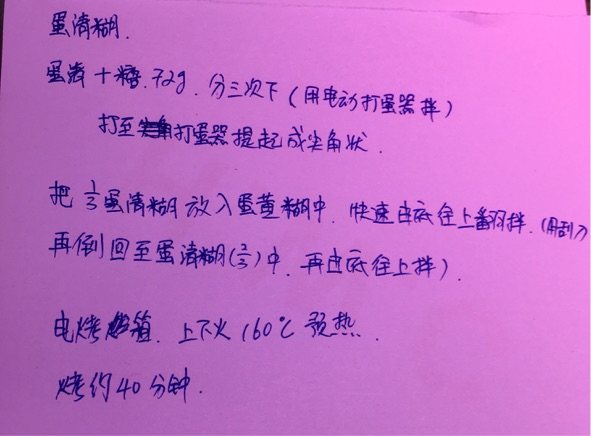 蛋清糊.
蛋清+糖.72g.分三次下(用电动打蛋器拌)
打至打蛋器提起成尖角状.
把1/3蛋清糊放入蛋黄糊中.快速由底往上翻拌.(用刮刀
再倒回至蛋清糊(2/3)中.再由底往上拌).
电烤箱.上下火160℃预热.
烤约40分钟.